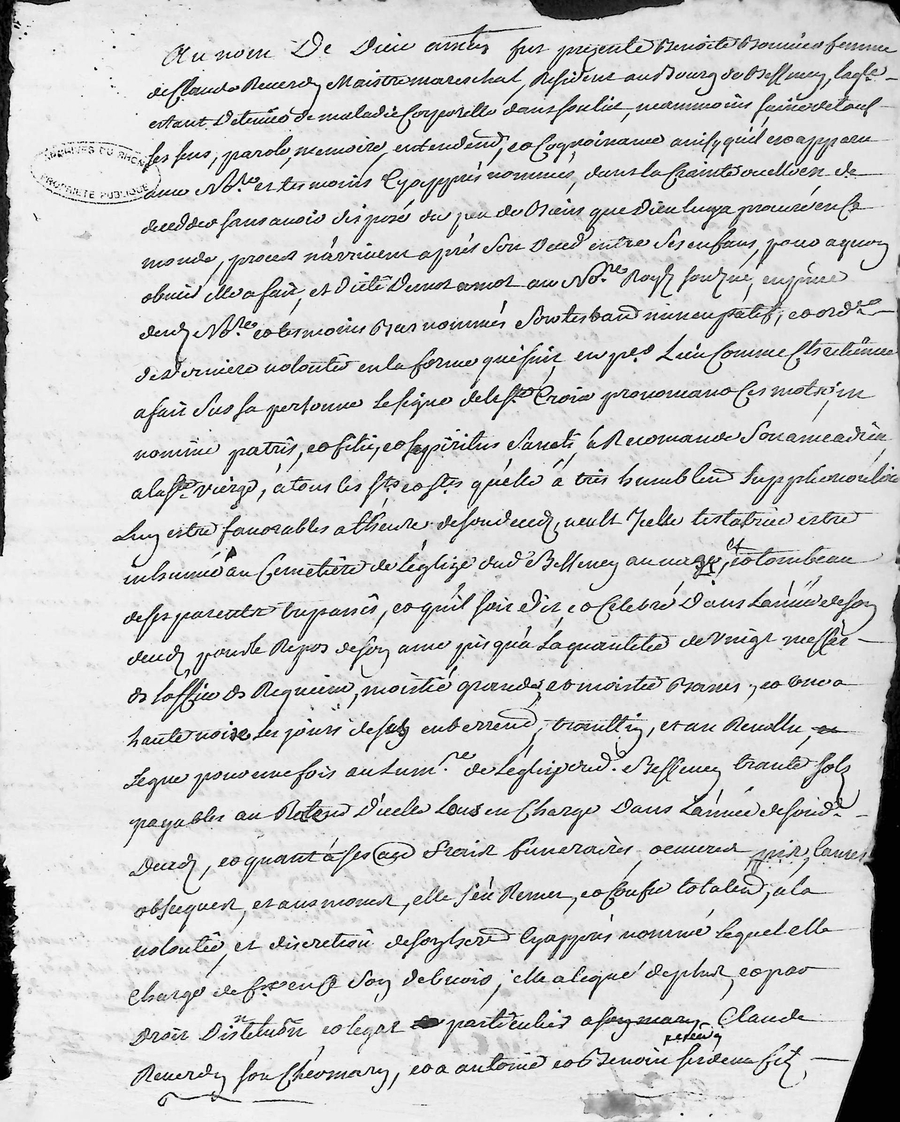 Au nom De Dieu amen fut presente Benoite Bonnier femme
de Claude Reverdy Maistre mareschal, Résident au Bourg de Bessenay, laqle
estant Detenüe de maladie Corporelle dans son lit, neammoins saine de tous
ses sens, parolle, memoire, entendemt, et Cognoissance ainsy qu'il est apparu
ARCHIVES DU RHONE
PROPRIÉTÉ PUBLIQUE
au Nore et tesmoins Cyapprés nommés, dans la Crainte ou elle est de
deceder sans avoir disposé du peu de Biens que Dieu luy a procuré en Ce
monde, et procez n'arrivent aprés Son Deced entre Ses enfans, pour a quoy
obvier elle a fait, et dicté De mot a mot au Nore Royal souzné, en pnce
dud Nore et tesmoins Bas nommés Son testament nuncupatif, et ordce
de derniere volonté en la forme qui suit, en pr Lieu Comme Chretienne
a fait Sur sa personne le signe de la Ste Croix prononcant Ces mots, in
nomine patris, et filii, et spiritus Sancti, a Recomandé Son ame a dieu
a la Ste vierge, a tous les Sts et Stes qu'elle a trés humblemt Supplié vouloir
Luy estre favorables a l'heure de son deced, veult Icelle testatrice estre
inhumée au Cemetière de l'église dud Bessenay au et tombeau
de ses parents trepassés, et qu'il soit dit, et Celebré Dans L'année de son
deced, pour le Repos de son ame jusqu'a La quantité de vingt messes
de l'office de Requiem, moitié grandes, et moitié Basses, et une a
haute voix les jours de son enterremt, et au Revollu,
Legue pour une fois au Lumre de l'église dud. Bessenay trante sols
payables au Rateur D'icelle Lors en Charge Dans L'année de sond.
Deced, et quant à ses frais funeraires, oeuvres
obseques, et aumones, elle s'en Remet, et Confie totalemt, a la
volonté, et discretion de son heritier Cyapprés nommé lequel elle
Charge de fre en Ce Son debvoir; elle a legué de plus, et par
Droit D'institution et legat particulier a son mary Claude
Reverdy
Reverdy son Cher mary, et a antoine et Benoist ses deux fils,